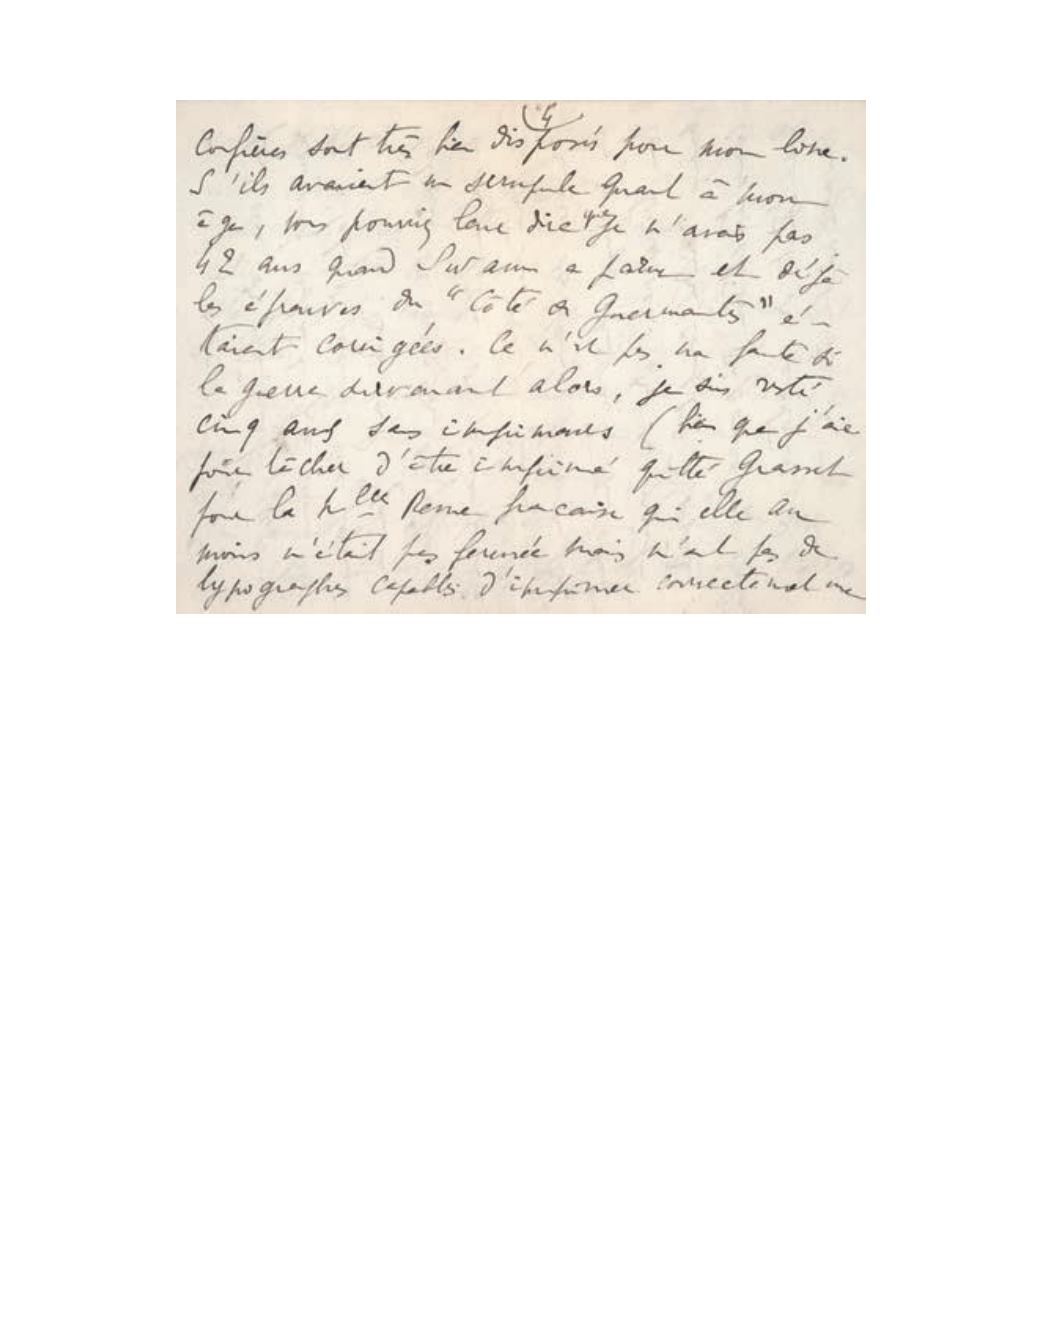 (4
Confrères sont très bien disposés pour mon livre.
S'ils avaient un scrupule quant à mon
âge, vous pourriez leur dire que je n'avais pas
42 ans quand Swann a paru et déjà
les épreuves du "Côté de Guermantes" é-
taient corrigées. Ce n'est pas ma faute si
la guerre survenant alors, je suis resté
cinq ans sans imprimeurs (bien que j'aie
pour tâcher d'être imprimé quitté Grasset
pour la Nlle Revue française qui elle au
moins n'était pas fermée mais n'eut pas de
typographes capables d'imprimer correctement une